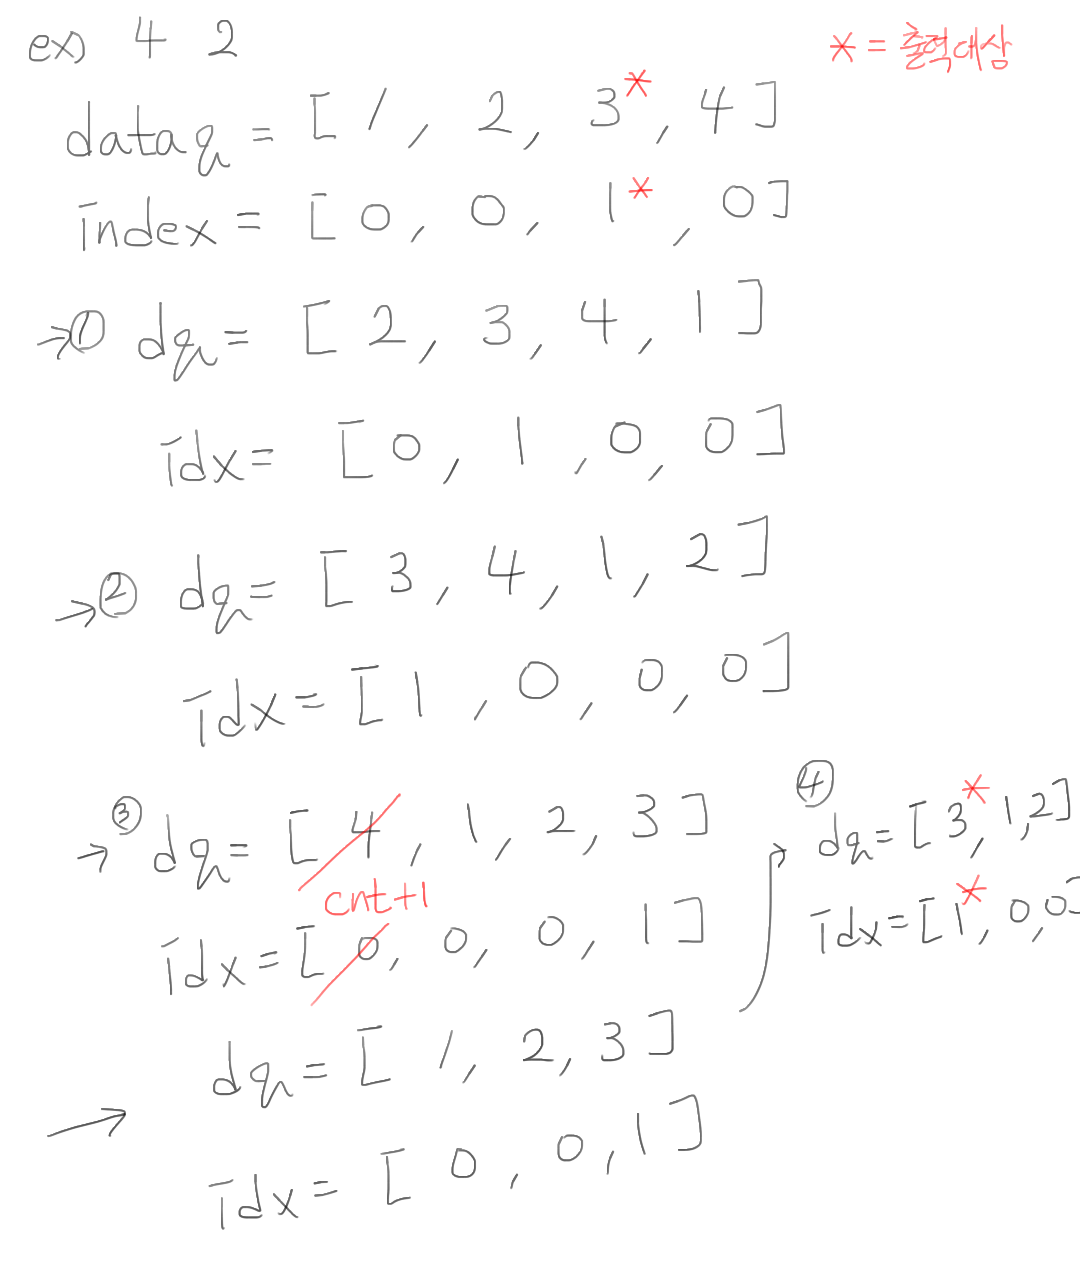 ex) 4 2
* = 출력대상
dataq = [1, 2, 3*, 4]
index = [0, 0, 1*, 0]
→① dq = [2, 3, 4, 1]
idx = [0, 1, 0, 0]
→② dq = [3, 4, 1, 2]
idx = [1, 0, 0, 0]
→③ dq = [4, 1, 2, 3]
cnt+1
idx = [0, 0, 0, 1]
→ dq = [1, 2, 3]
idx = [0, 0, 1]
→④ dq = [3*, 1, 2]
idx = [1*, 0, 0]